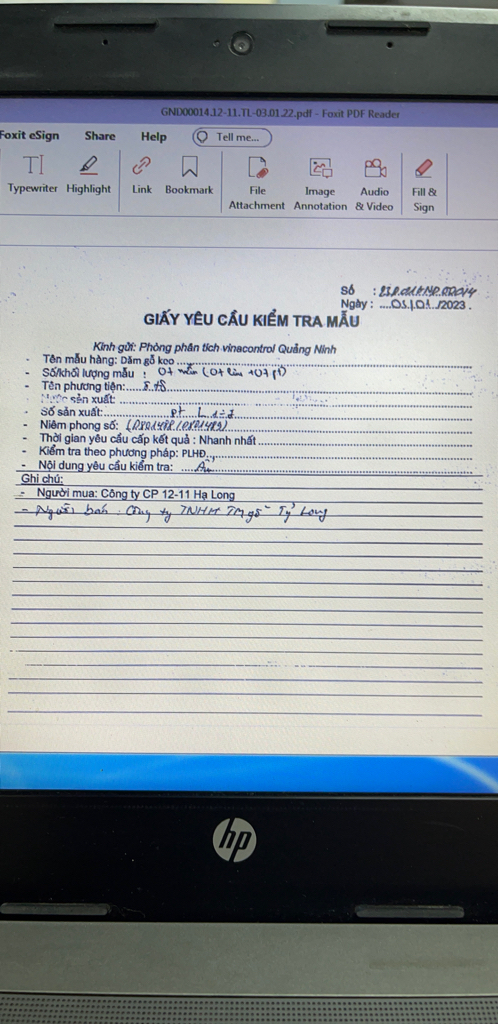 GND00014.12-11.TL-03.01.22.pdf - Foxit PDF Reader
Foxit eSign Share Help Tell me...
Typewriter Highlight Link Bookmark File Attachment Image Annotation Audio & Video Fill & Sign
Số :
Ngày : ....03.1.01../2023.
GIẤY YÊU CẦU KIỂM TRA MẪU
Kính gửi: Phòng phân tích vinacontrol Quảng Ninh
- Tên mẫu hàng: Dăm gỗ keo
- Số/khối lượng mẫu : 07 mẫu
- Tên phương tiện:
- Nước sản xuất:
- Số sản xuất:
- Niêm phong số:
- Thời gian yêu cầu cấp kết quả : Nhanh nhất
- Kiểm tra theo phương pháp: PLHĐ
- Nội dung yêu cầu kiểm tra:
Ghi chú:
- Người mua: Công ty CP 12-11 Hạ Long
- Người bán : Công ty TNHH Long
hp